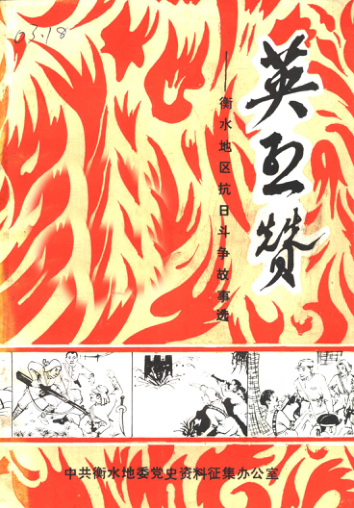 英烈赞
——衡水地区抗日斗争故事选
中共衡水地委党史资料征集办公室